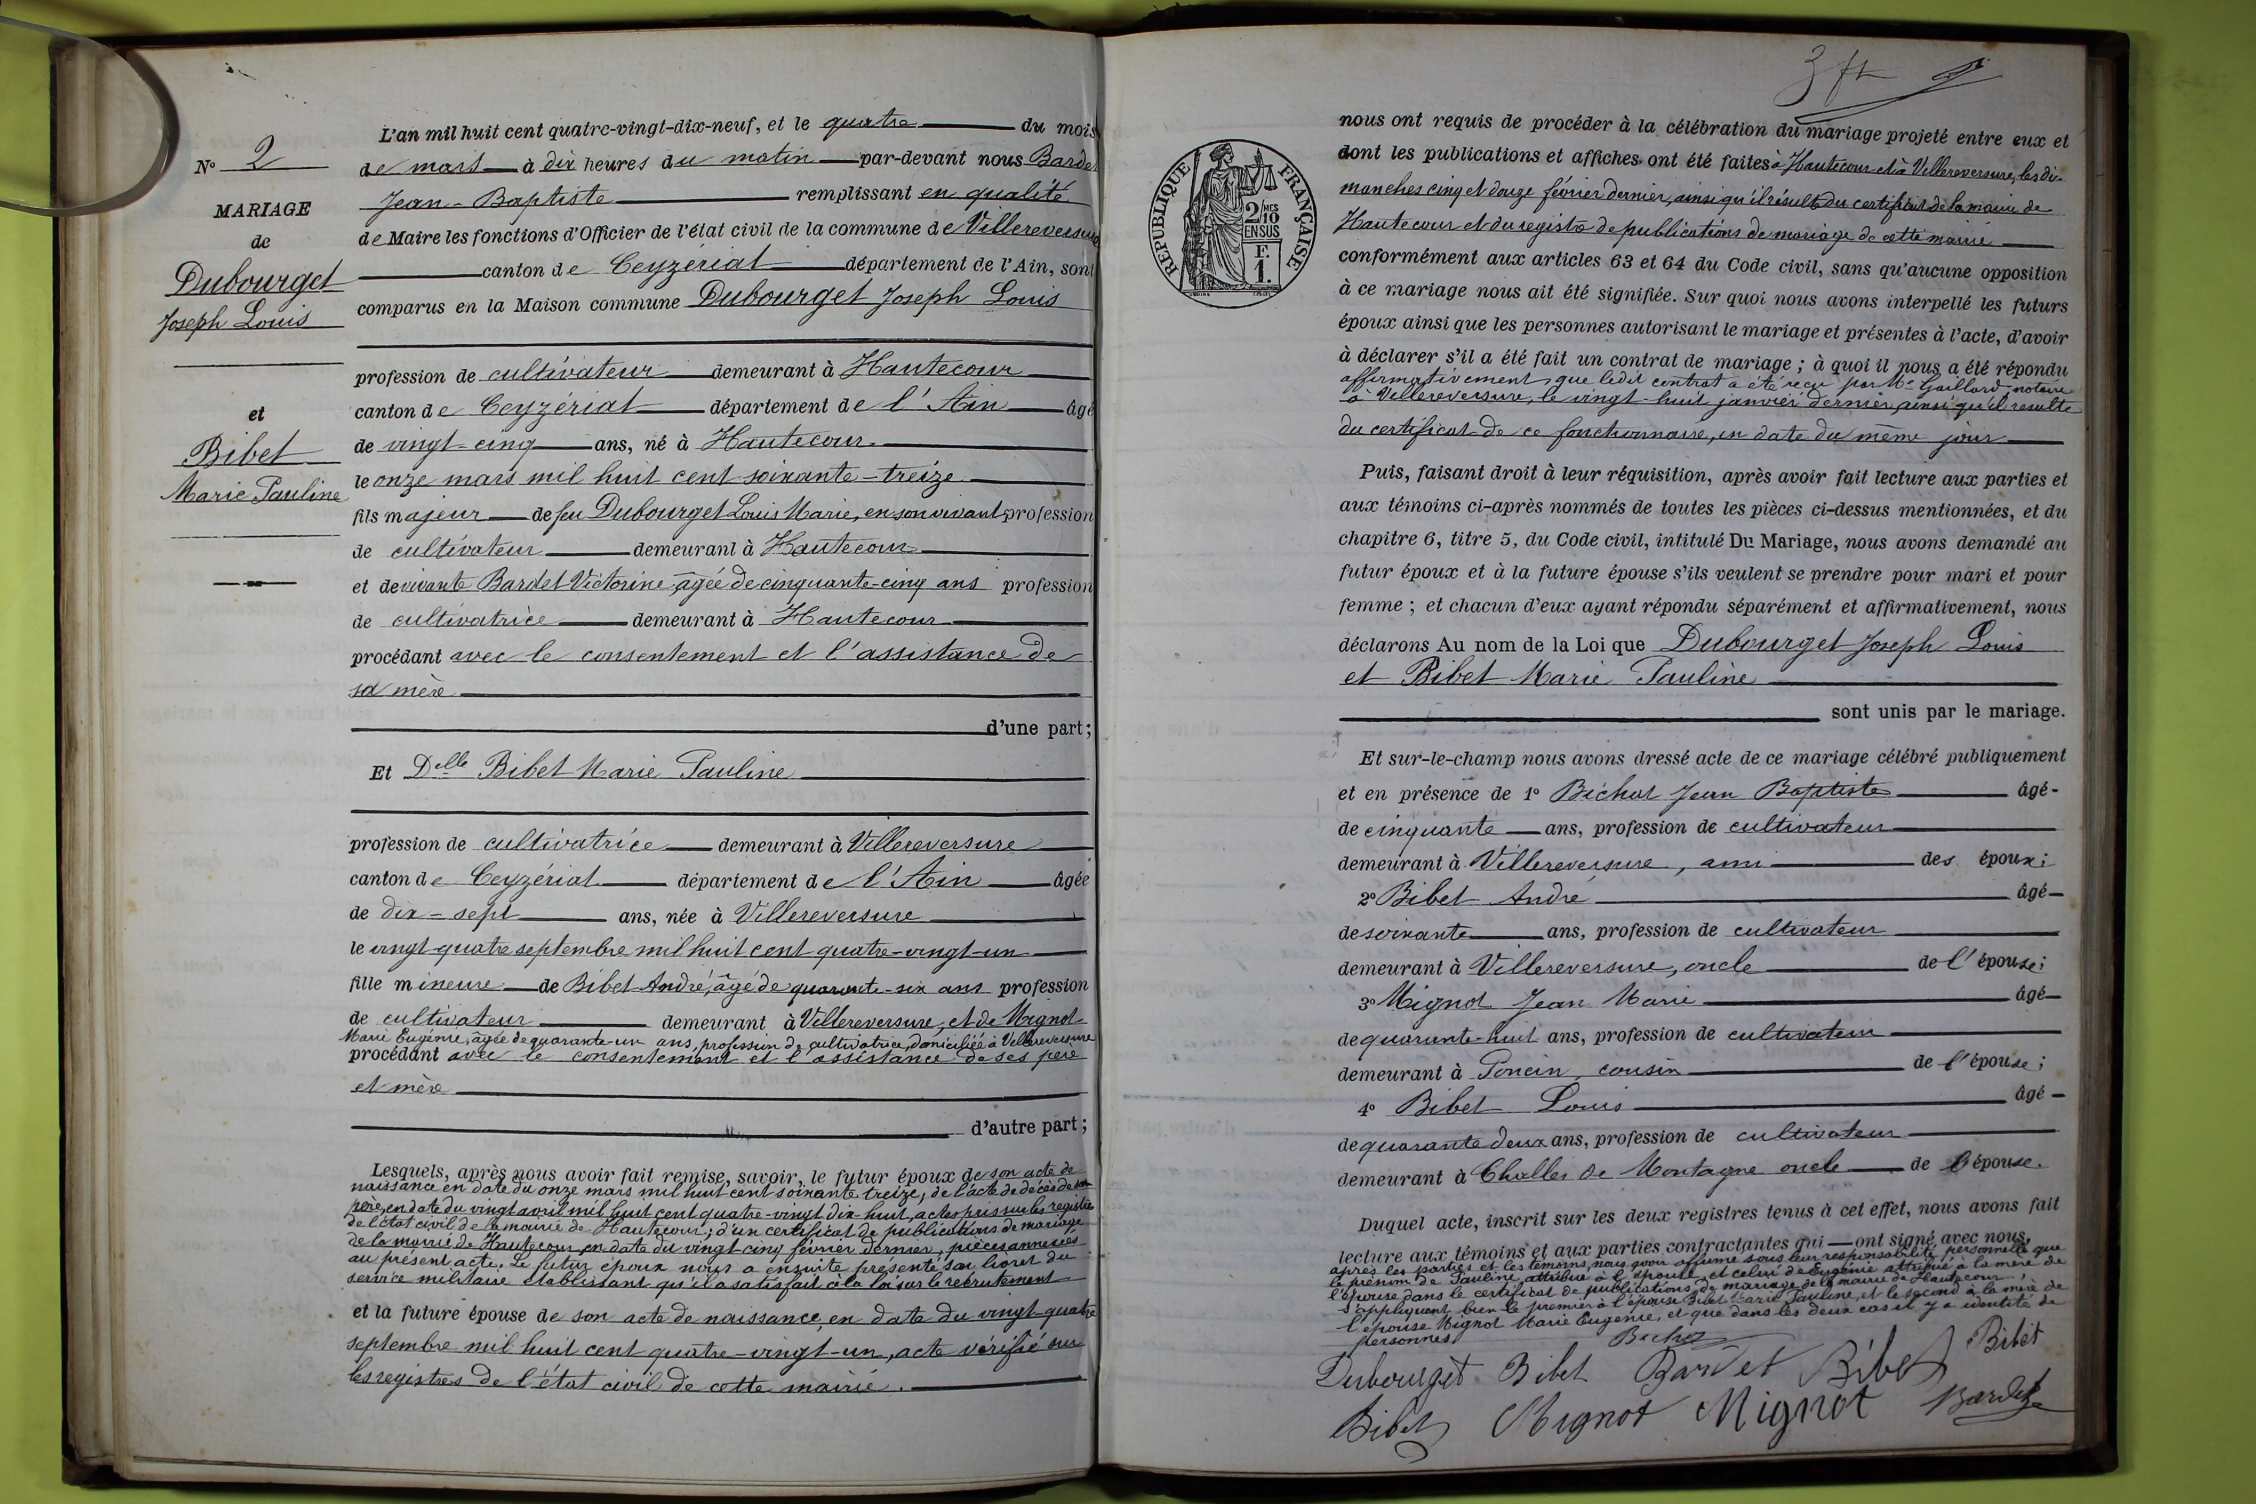 N° 2
MARIAGE
de
Dubourget
Joseph Louis
et
Bibet
Marie Pauline
L'an mil huit cent quatre-vingt-dix-neuf, et le quatre du mois
de mars à dix heures du matin par-devant nous Bardet
Jean-Baptiste remplissant en qualité
de Maire les fonctions d'Officier de l'état civil de la commune de Villereversure
canton de Ceyzériat département de l'Ain, sont
comparus en la Maison commune Dubourget Joseph Louis
profession de cultivateur demeurant à Hautecour
canton de Ceyzériat département de l'Ain âgé
de vingt-cinq ans, né à Hautecour
le onze mars mil huit cent soixante-treize
fils majeur de feu Dubourget Louis Marie, en son vivant profession
de cultivateur demeurant à Hautecour
et de vivante Bardet Victorine âgée de cinquante-cinq ans profession
de cultivatrice demeurant à Hautecour
procédant avec le consentement et l'assistance de
sa mère
d'une part;
Et Delle Bibet Marie Pauline
profession de cultivatrice demeurant à Villereversure
canton de Ceyzériat département de l'Ain âgée
de dix-sept ans, née à Villereversure
le vingt-quatre septembre mil huit cent quatre-vingt-un
fille mineure de Bibet André, âgé de quarante-six ans profession
de cultivateur demeurant à Villereversure, et de Mignot
Marie Eugénie, âgée de quarante-un ans, profession de cultivatrice, domiciliée à Villereversure
procédant avec le consentement et l'assistance de ses père
et mère
d'autre part;
Lesquels, après nous avoir fait remise, savoir, le futur époux de son acte de
naissance en date du onze mars mil huit cent soixante treize, de l'acte de décès de son
père, en date du vingt avril mil huit cent quatre-vingt dix-huit, actes pris sur les registres
de l'état civil de la mairie de Hautecour; d'un certificat de publications de mariage
de la mairie de Hautecour en date du vingt cinq février dernier; pièces annexées
au présent acte. Le futur époux nous a ensuite présenté son livret du
service militaire établissant qu'il a satisfait à la loi sur le recrutement
et la future épouse de son acte de naissance, en date du vingt-quatre
septembre mil huit cent quatre-vingt-un, acte vérifié sur
les registres de l'état civil de cette mairie.
3 ft
RÉPUBLIQUE FRANÇAISE
2/10 MES
EN SUS
F.
1.
nous ont requis de procéder à la célébration du mariage projeté entre eux et
dont les publications et affiches ont été faites à Hautecour et à Villereversure, les di-
manches cinq et douze février dernier, ainsi qu'il résulte du certificat de la mairie de
Hautecour et du registre de publications de mariage de cette mairie
conformément aux articles 63 et 64 du Code civil, sans qu'aucune opposition
à ce mariage nous ait été signifiée. Sur quoi nous avons interpellé les futurs
époux ainsi que les personnes autorisant le mariage et présentes à l'acte, d'avoir
à déclarer s'il a été fait un contrat de mariage; à quoi il nous a été répondu
affirmativement, que ledit contrat a été reçu par Me Gaillard notaire
à Villereversure, le vingt-huit janvier dernier, ainsi qu'il résulte
du certificat de ce fonctionnaire, en date du même jour
Puis, faisant droit à leur réquisition, après avoir fait lecture aux parties et
aux témoins ci-après nommés de toutes les pièces ci-dessus mentionnées, et du
chapitre 6, titre 5, du Code civil, intitulé Du Mariage, nous avons demandé au
futur époux et à la future épouse s'ils veulent se prendre pour mari et pour
femme; et chacun d'eux ayant répondu séparément et affirmativement, nous
déclarons Au nom de la Loi que Dubourget Joseph Louis
et Bibet Marie Pauline
sont unis par le mariage.
Et sur-le-champ nous avons dressé acte de ce mariage célébré publiquement
et en présence de 1° Bichat Jean Baptiste âgé-
de cinquante ans, profession de cultivateur
demeurant à Villereversure, ami des époux;
2° Bibet André âgé
de soixante ans, profession de cultivateur
demeurant à Villereversure, oncle de l'épouse;
3° Mignot Jean Marie âgé
de quarante-huit ans, profession de cultivateur
demeurant à Poncin, cousin de l'épouse;
4° Bibet Louis âgé
de quarante deux ans, profession de cultivateur
demeurant à Challes de Montagne oncle de l'épouse.
Duquel acte, inscrit sur les deux registres tenus à cet effet, nous avons fait
lecture aux témoins et aux parties contractantes qui ont signé avec nous,
après les parties et les témoins, nous avoir affirmé sous leur responsabilité personnelle que
le prénom de Pauline attribué à l'épouse, et celui de Eugénie attribué à la mère de
l'épouse dans le certificat de publications de mariage de la mairie de Hautecour,
s'appliquent bien le premier à l'épouse Bibet Marie Pauline, et le second à la mère de
l'épouse Mignot Marie Eugénie, et que dans les deux cas il y a identité de
personnes
Bichat
Dubourget Bibet Bardet Bibet Bibet
Bibet Mignot Mignot Bardet